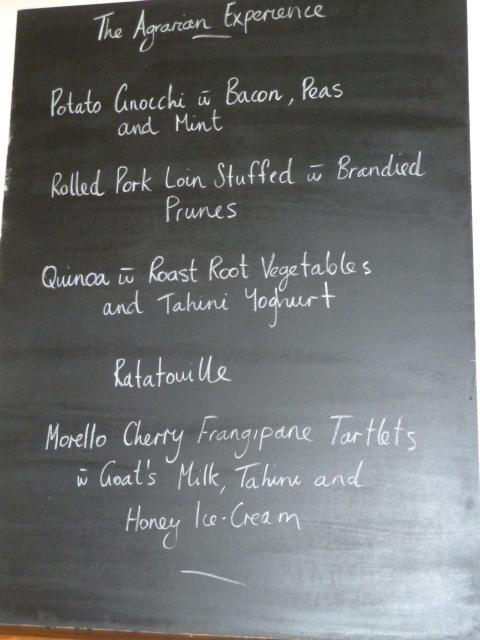 The Agrarian Experience
Potato Gnocchi w̄ Bacon, Peas
and Mint
Rolled Pork Loin Stuffed w̄ Brandied
Prunes
Quinoa w̄ Roast Root Vegetables
and Tahini Yoghurt
Ratatouille
Morello Cherry Frangipane Tartlets
w̄ Goat's Milk, Tahini and
Honey Ice-Cream